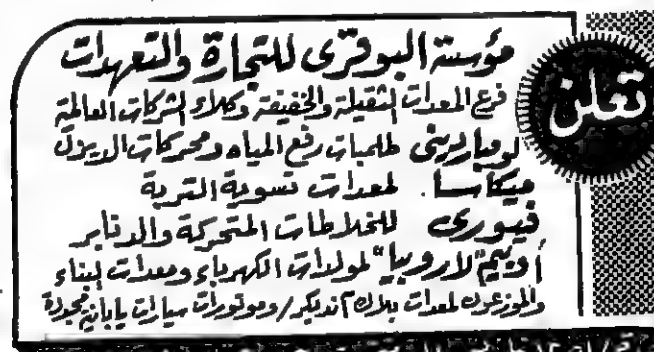 تعلن
مؤسسة البوقري للتجارة والتعهدات
فرع المعدات الثقيلة والخفيفة وكلاء الشركات العالمية
لومبارديني طلمبات رفع المياه ومحركات الديزل
ميكاسا. لمعدات تسوية التربة
فيورى للخلاطات المتحركة والدنابر
"لاروبيا" لمولدات الكهرباء ومعدات البناء
والموزعون لمعدات بلاك آند ديكر / وموتورات سيارات يابانية مجددة